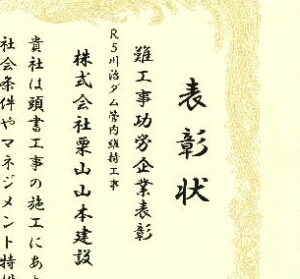 表彰状
難工事功労企業表彰
R5川治ダム管内維持工事
株式会社栗山山本建設
貴社は頭書工事の施工にあ
社会条件やマネジメント特